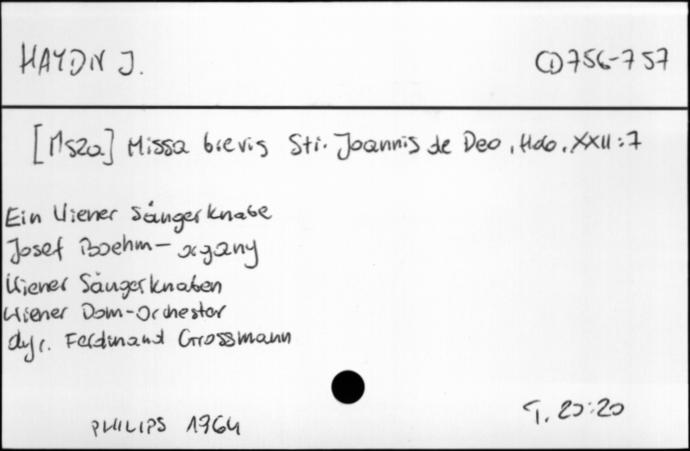 HAYDN J. CD 756-757
[Msza] Missa brevis Sti. Joannis de Deo, Hob. XXII:7
Ein Wiener Sängerknabe
Josef Boehm - organy
Wiener Sängerknaben
Wiener Dom-Orchester
dyr. Ferdinand Grossmann
T. 20:20
PHILIPS 1964